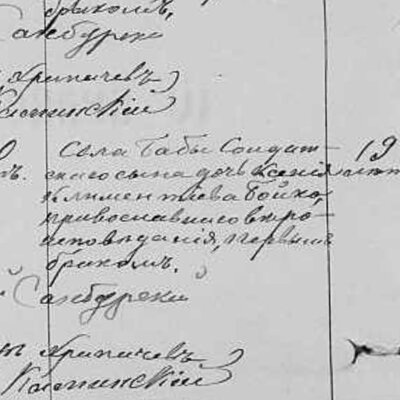 бракомъ,
Самбурски
Хрипачевъ
Каменскій
Села Бабы Солдат- 19
скаго сына дочь Ксенія лѣт
Климентіева Бойко,
православнаго вѣро-
исповѣданія, первымъ
бракомъ.
Самбурскій
Хрипачевъ
Каменскій